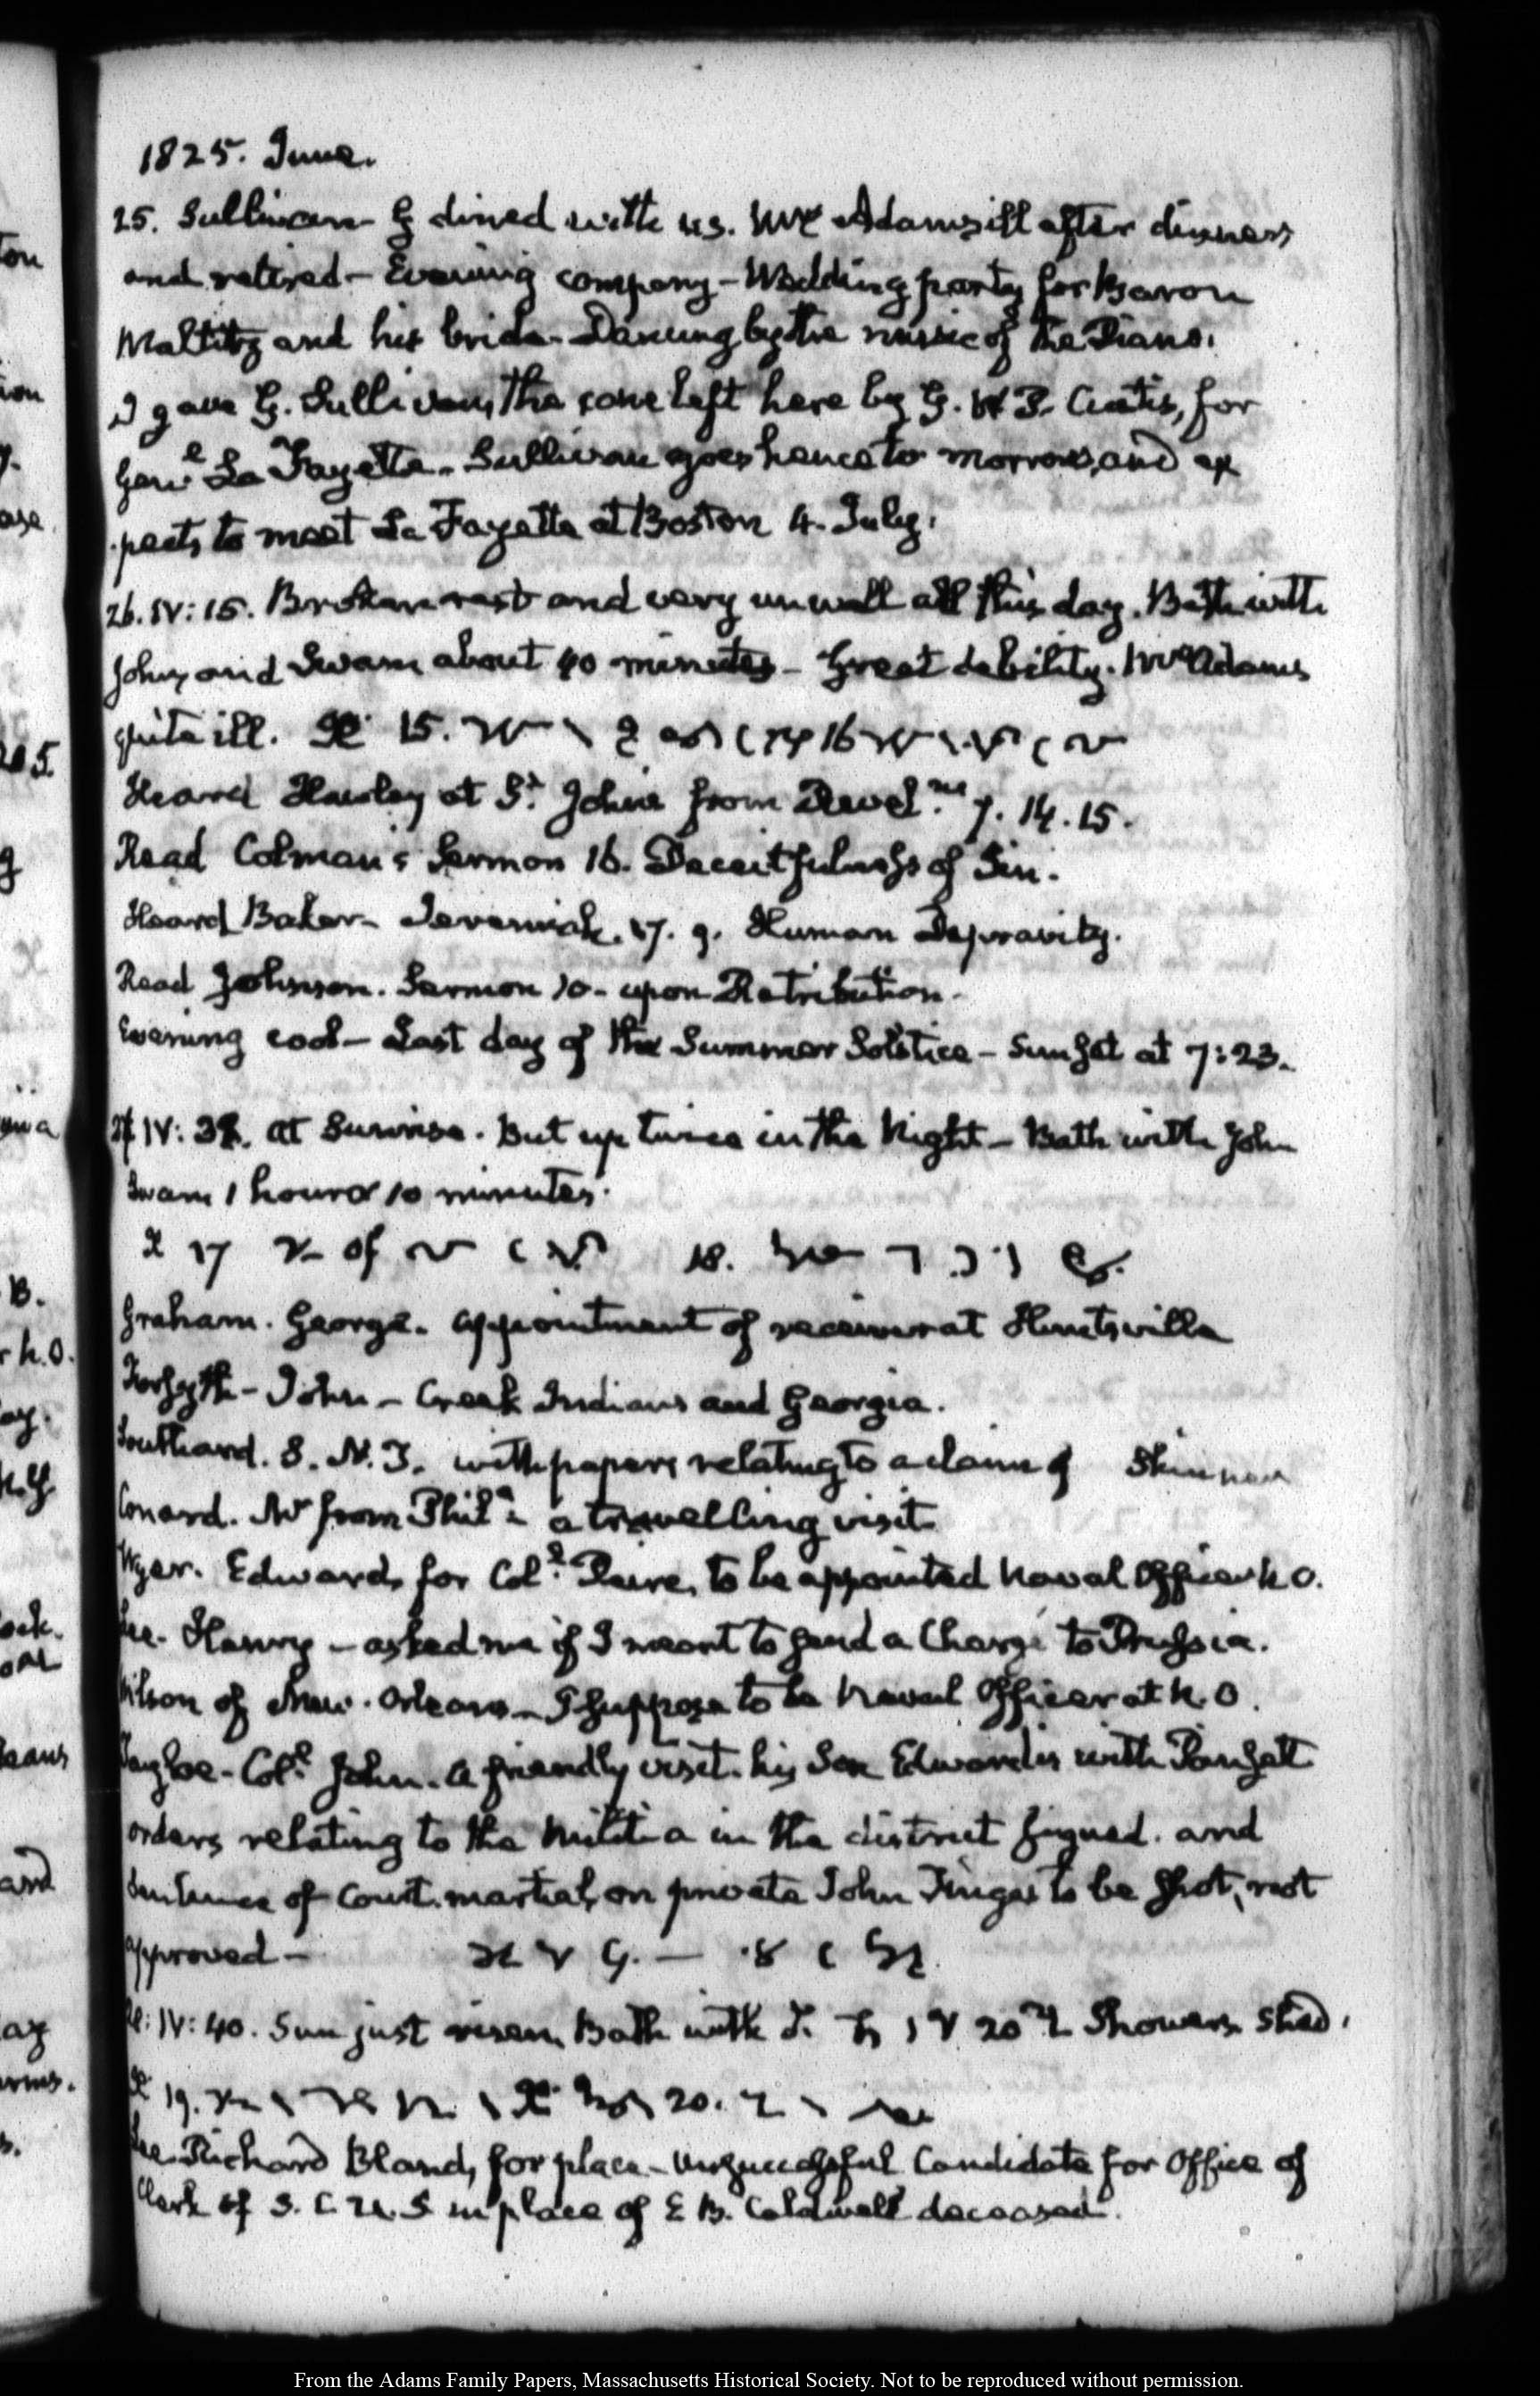 1825. June.
25. Sullivan G dined with us. Mrs Adams ill after dinner
and retired – Evening company – Wedding party for Baron
Maltitz and his bride – Dancing by the music of the Piano.
I gave G. Sullivan, the cane left here by G. W P. Custis, for
Genl. La Fayette. Sullivan goes hence to morrow, and ex
pects to meet La Fayette at Boston 4. July.
26. IV: 15. Broken rest and very unwell all this day. Bath with
John, and Swam about 40 minutes – Great debility. Mrs Adams
quite ill. 15. 16
Heard Hawley at St. John's from Revel.ns 7. 14. 15.
Read Colman's Sermon 16. Deceitfulness of Sin.
Heard Baker – Jeremiah. 17. 9. Human Depravity.
Read Johnson. Sermon 10 – upon Retribution –
Evening cool – Last day of the Summer Solstice – Sun set at 7:23.
27. IV: 38. at Sunrise. But up twice in the Night – Bath with John
Swam 1 hour & 10 minutes.
17 of 18.
Graham. George. appointment of receiver at Huntsville
Forsyth – John – Creek Indians and Georgia.
Southard. S. with papers relating to a claim of Skinner
Conard. Mr from Phila. a travelling visit
Wyer. Edward, for Coll. to be appointed Naval Officer N O.
Lee. Henry – asked me if I meant to send a Chargé to Prussia.
Wilson of New-Orleans – I suppose to be Naval Officer at N. O.
Tayloe – Coll. John. a friendly visit. his Son Edward is with Poinsett
orders relating to the Militia in the district signed. and
Sentence of Court martial, on private John to be Shot, not
approved –
28. IV: 40. Sun just risen, Bath with J. 1 20 Showers shed.
19. 20.
Lee. Richard Bland, for place – unsuccessful Candidate for Office of
Clerk of S. C. U. S in place of E B. Caldwell deceased.
From the Adams Family Papers, Massachusetts Historical Society. Not to be reproduced without permission.